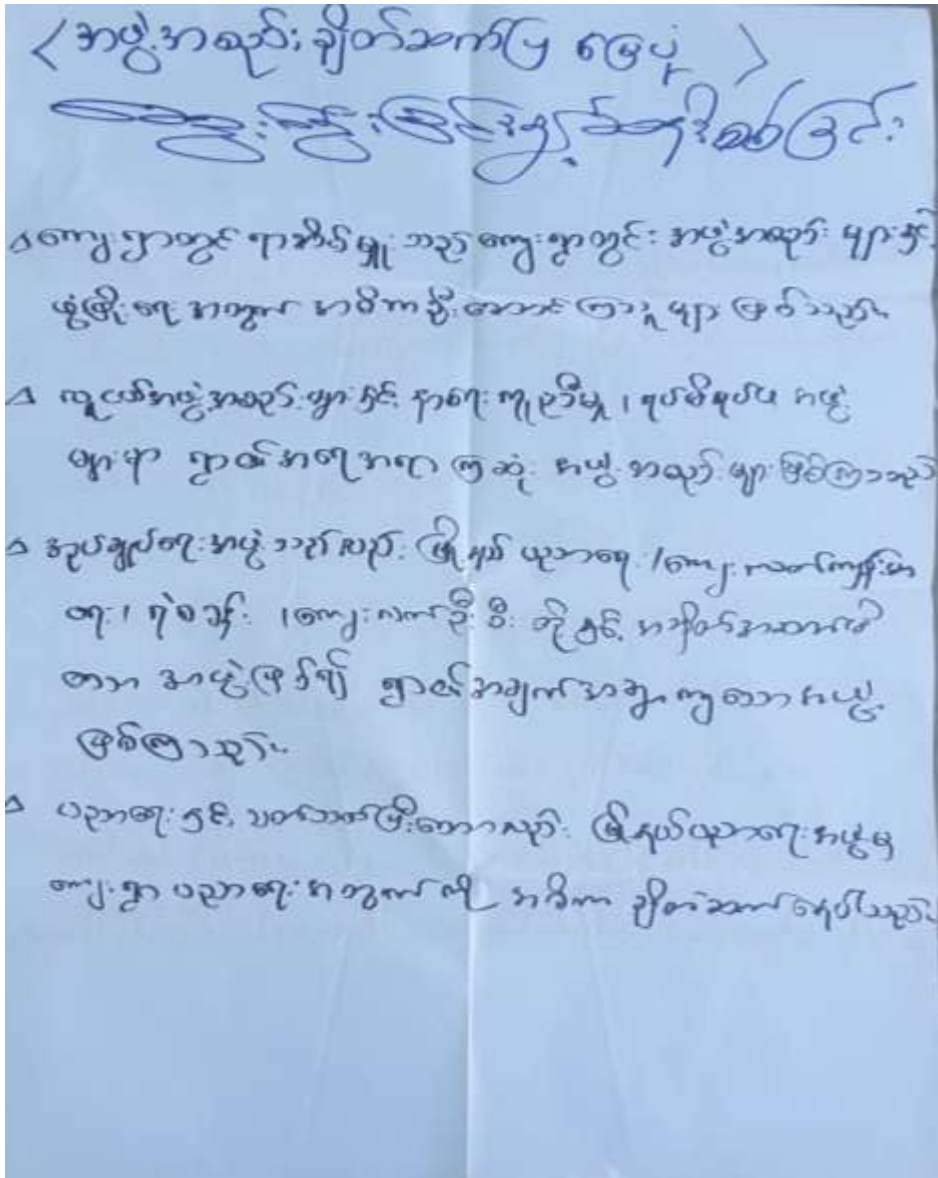 <အဖွဲ့အစည်း ချိတ်ဆက်ပြ မြေပုံ>
ဆွေးနွေးခြင်းနှင့် စစ်ခြင်း
ကျေးရွာတွင် ရာအိမ်မှူးသည် ကျေးရွာတွင်း အဖွဲ့အစည်း များနှင့်
ဖွံ့ဖြိုးရေး အတွက် အဓိကဦးဆောင်ကြသူများ ဖြစ်သည်။
လူငယ်အဖွဲ့အစည်းများနှင့် နာရေးကူညီမှု၊ ရပ်မိရပ်ဖ အဖွဲ့
များမှာ ရွာ၏အရေးအရာကြဆုံး အဖွဲ့အစည်းများဖြစ်ကြသည်
အုပ်ချုပ်ရေးအဖွဲ့သည်လည်း မြို့နယ် ပညာရေး / ကျေးလက်ကျန်းမာ
ရေး / ရဲစခန်း / ကျေးလက်ဦးစီး တို့နှင့် အချိတ်အဆက်မိ
သော အဖွဲ့ဖြစ်၍ ရွာ၏အချက်အချာကျသောအဖွဲ့
ဖြစ်ကြသည်။
ပညာရေးနှင့် ပတ်သက်ပြီးသော်လည်း မြို့နယ်ပညာရေးအဖွဲ့မှ
ကျေးရွာ ပညာရေးအတွက်ကို အဓိက ချိတ်ဆက်နေပါသည်။